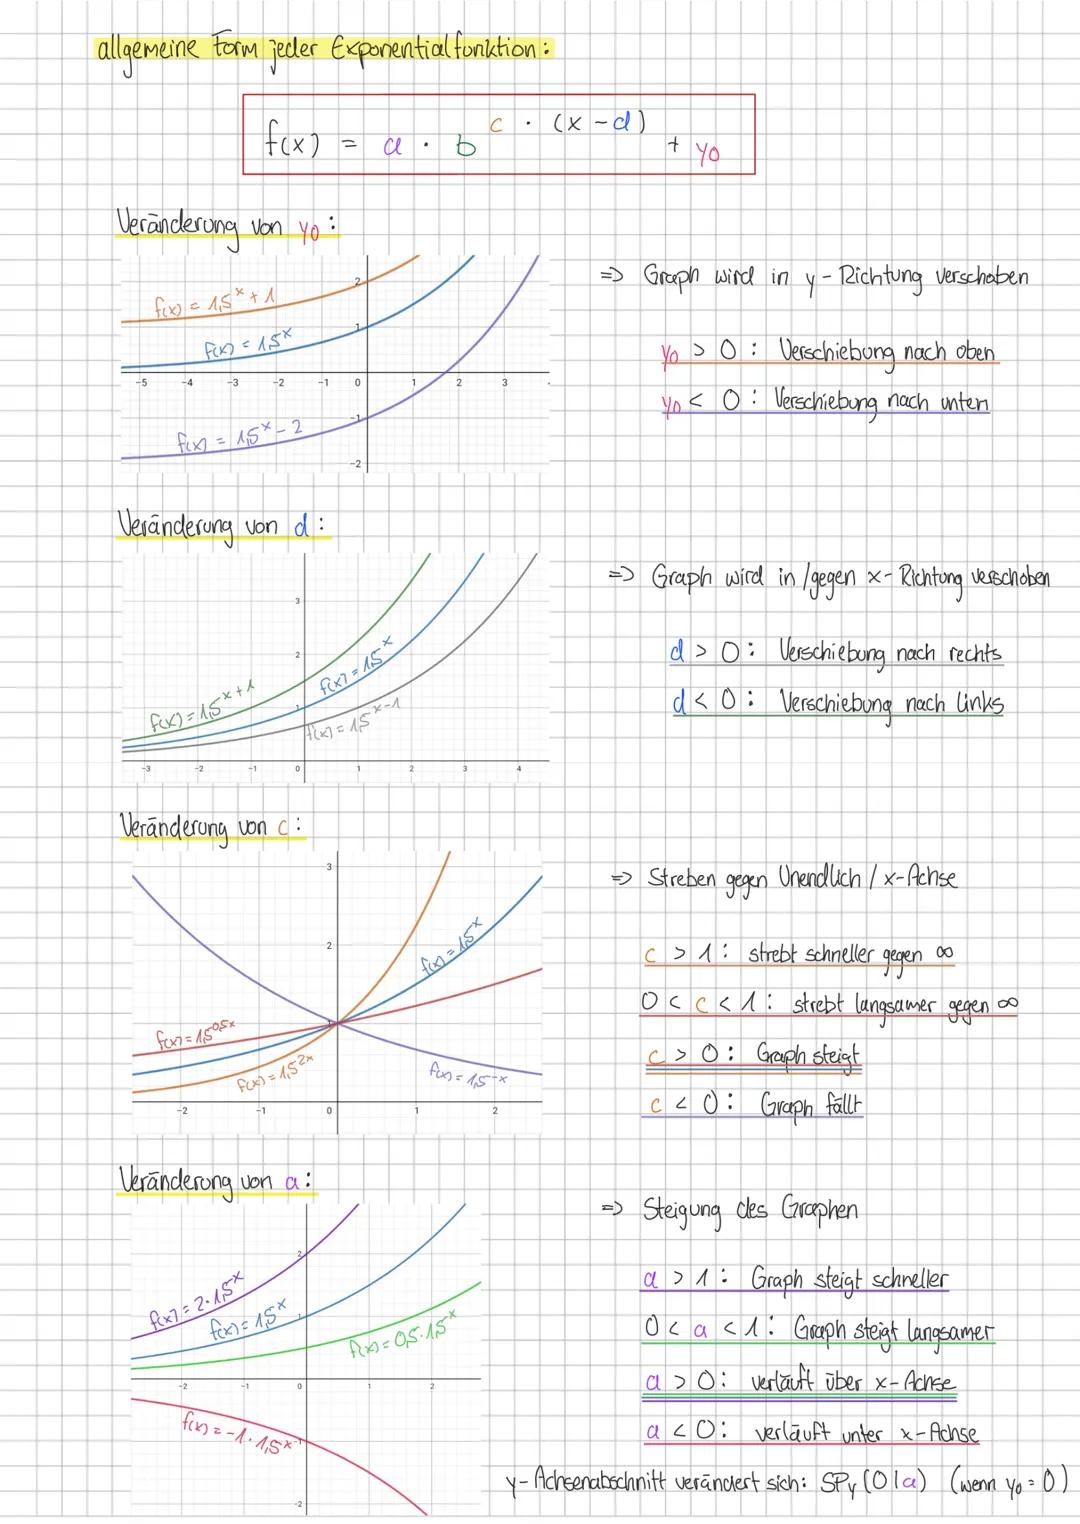 allgemeine Form jeder Exponentialfunktion:
f(x) = a · b^c · (x - d) + y0
Veränderung von y0:
f(x) = 1,5^x + 1
f(x) = 1,5^x
f(x) = 1,5^x - 2
2
1
-5 -4 -3 -2 -1 0 1 2 3
-1
-2
=> Graph wird in y-Richtung verschoben
y0 > 0: Verschiebung nach oben
y0 < 0: Verschiebung nach unten
Veränderung von d:
f(x) = 1,5^x+1
f(x) = 1,5^x
f(x) = 1,5^x-1
3
2
1
-3 -2 -1 0 1 2 3 4
=> Graph wird in/gegen x-Richtung verschoben
d > 0: Verschiebung nach rechts
d < 0: Verschiebung nach links
Veränderung von c:
3
2
1
f(x) = 1,5^x
f(x) = 1,5^0,5x
f(x) = 1,5^2x
f(x) = 1,5^-x
-2 -1 0 1 2
=> Streben gegen Unendlich / x-Achse
c > 1: strebt schneller gegen ∞
0 < c < 1: strebt langsamer gegen ∞
c > 0: Graph steigt
c < 0: Graph fällt
Veränderung von a:
2
1
f(x) = 2·1,5^x
f(x) = 1,5^x
f(x) = 0,5·1,5^x
-2 -1 0 1 2
f(x) = -1·1,5^x
-1
-2
=> Steigung des Graphen
a > 1: Graph steigt schneller
0 < a < 1: Graph steigt langsamer
a > 0: verläuft über x-Achse
a < 0: verläuft unter x-Achse
y-Achsenabschnitt verändert sich: SPy (0|a) (wenn y0 = 0)